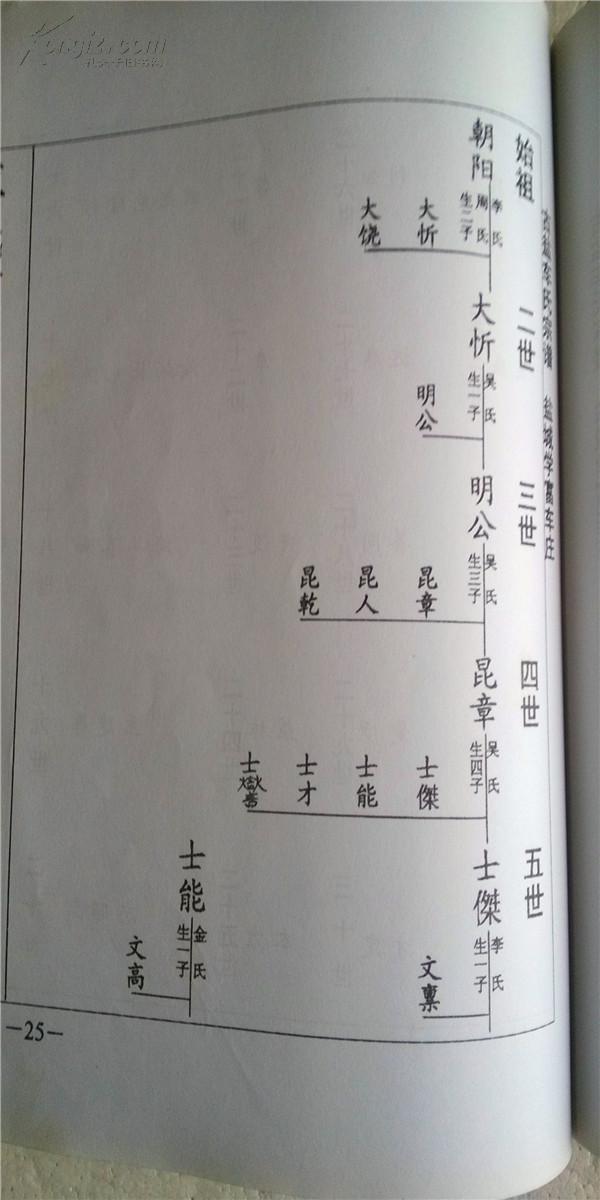 始祖
二世
三世
四世
五世
盐城学富车庄
朝阳
李氏
周氏
生二子
大忻
大饶
大忻
吴氏
生一子
明公
明公
吴氏
生三子
昆章
昆人
昆乾
昆章
吴氏
生四子
士傑
士能
士才
士
士傑
李氏
生一子
文稟
士能
金氏
生一子
文高
—25—
孔夫子旧书网